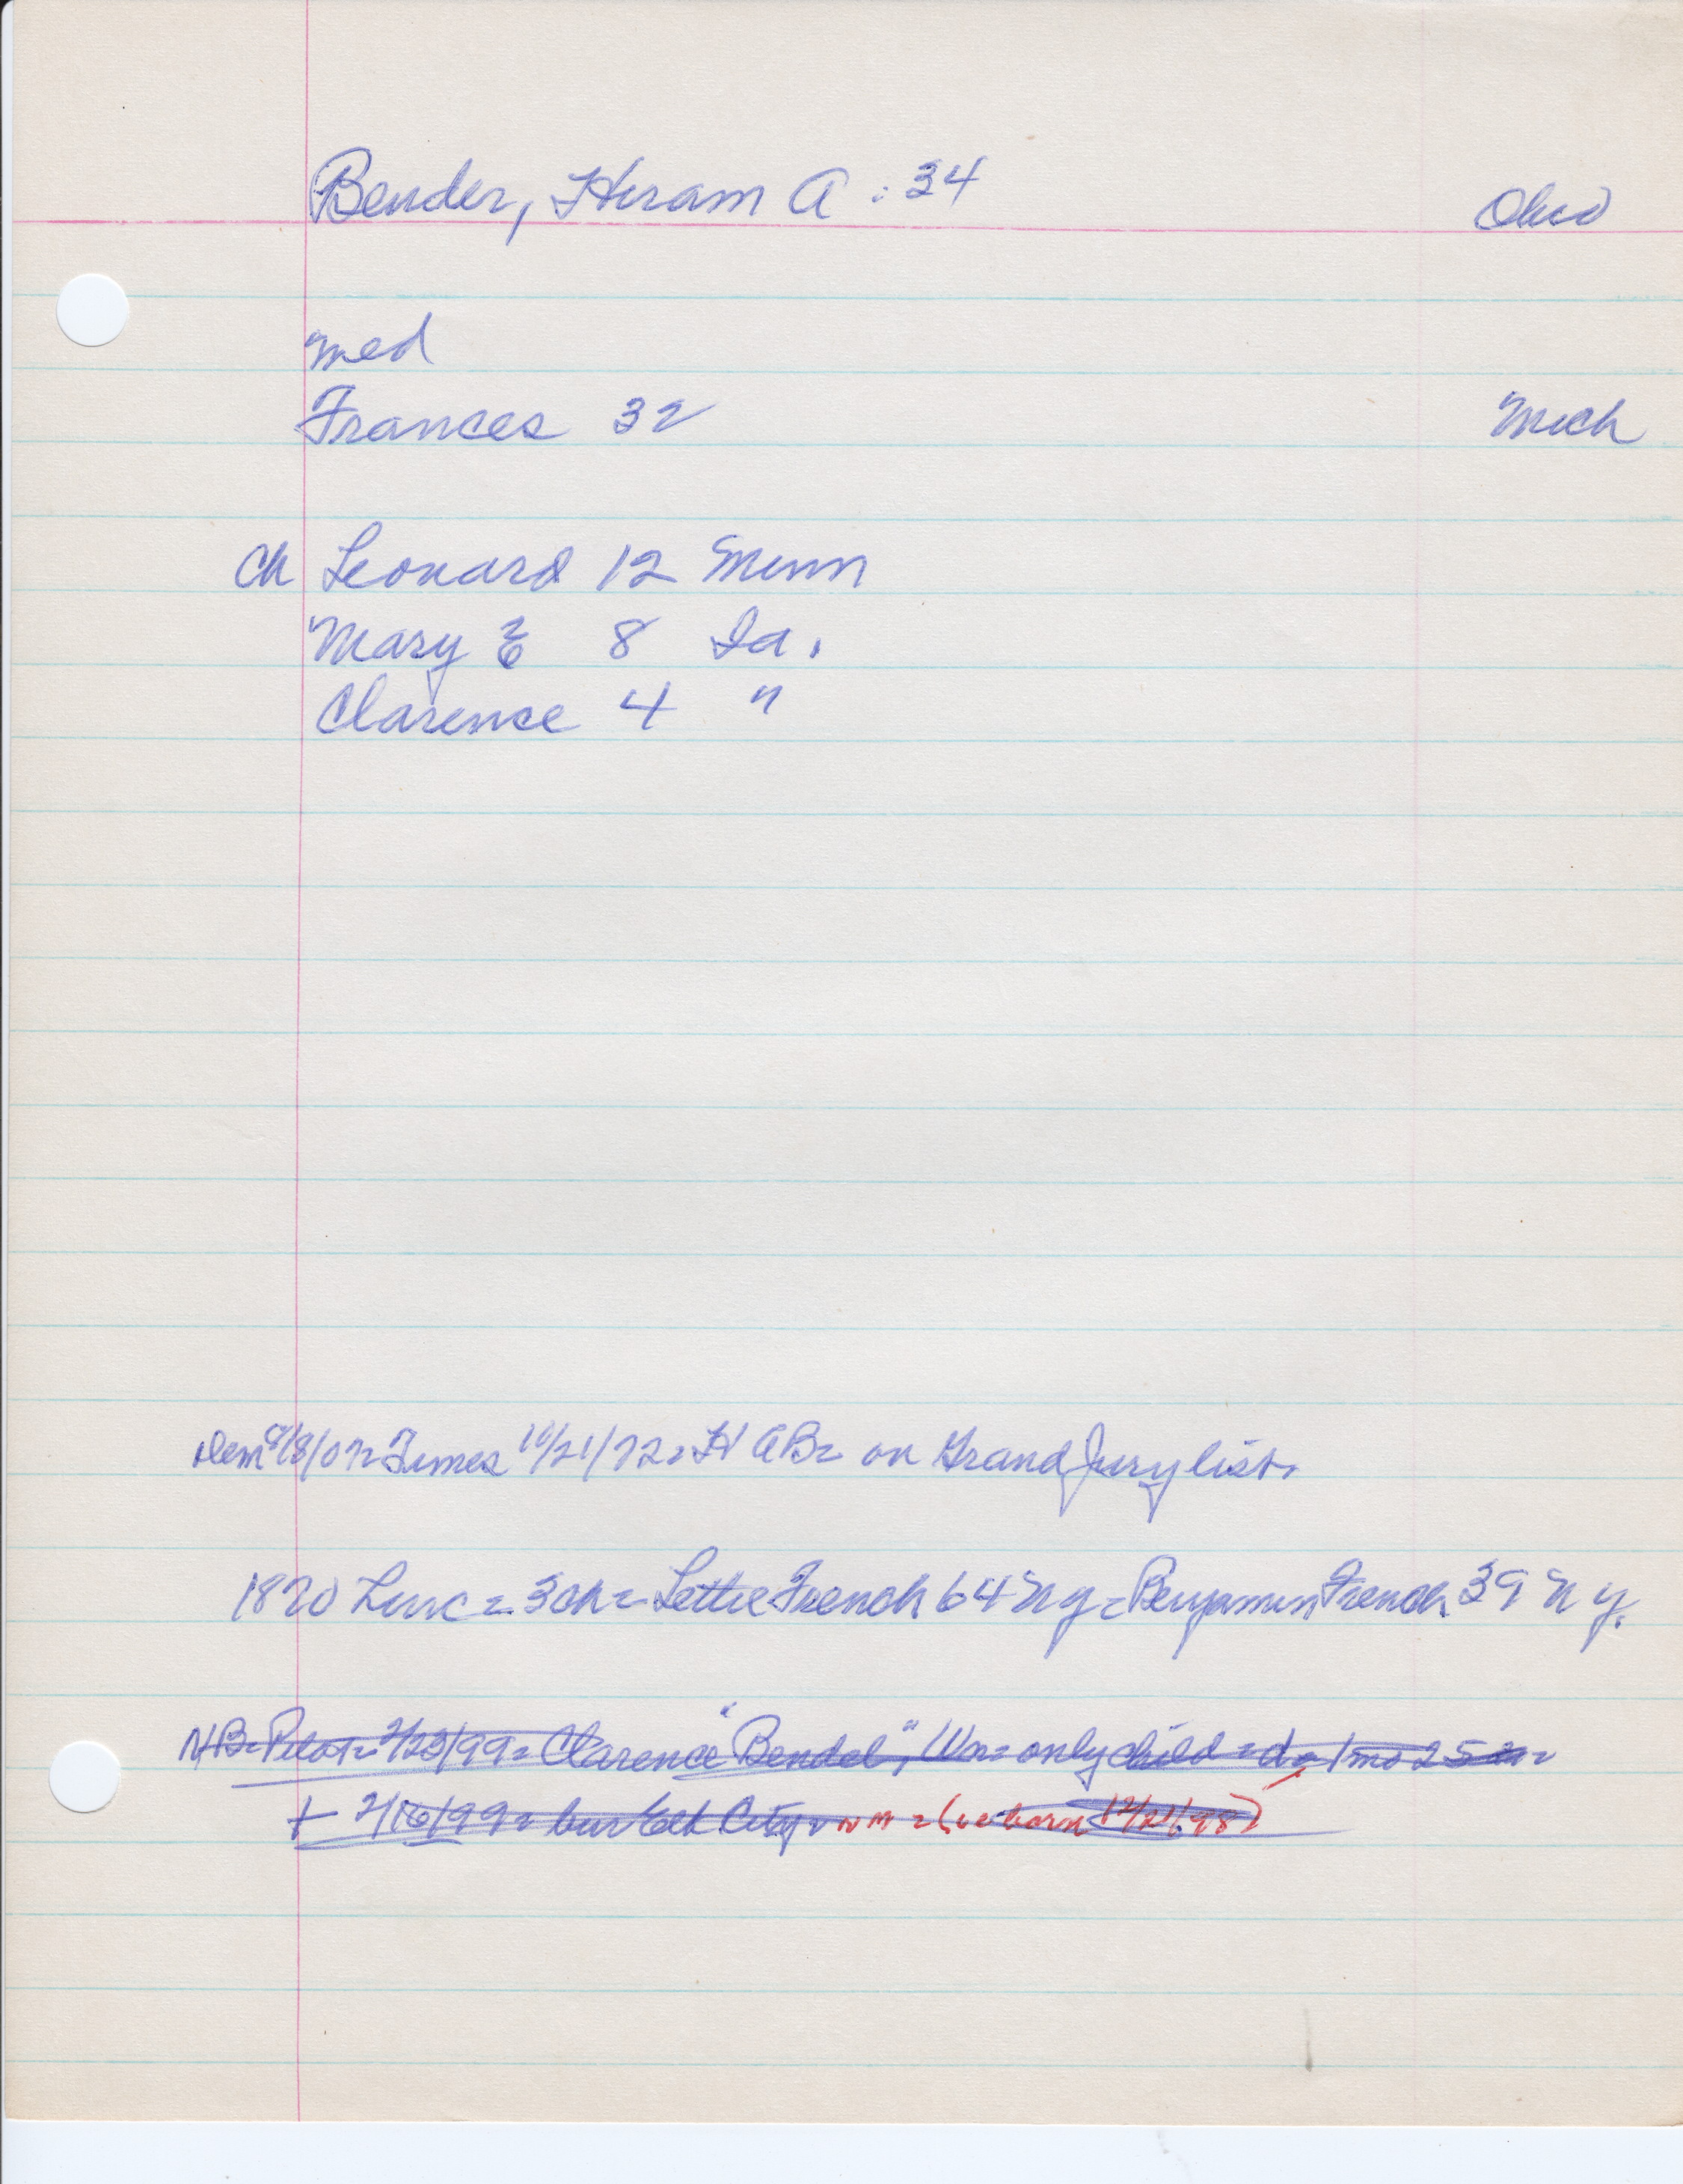 Bender, Hiram A : 34 Ohio
med
Frances 32 Mich
Ch Leonard 12 Minn
Mary E 8 Ia.
Clarence 4 "
Dem 9/8/07 = Times 10/21/72 = H A B = on Grand Jury list.
1870 = 3 ch = Lettie French 64 N Y = Benjamin French 39 N Y.
NB = Pilot = 2/23/99 = Clarence "Bendel," = only child = d = 1 mo 25
+ 2/16/99 = bur Elk City = N M = (ie born 12/21/98)